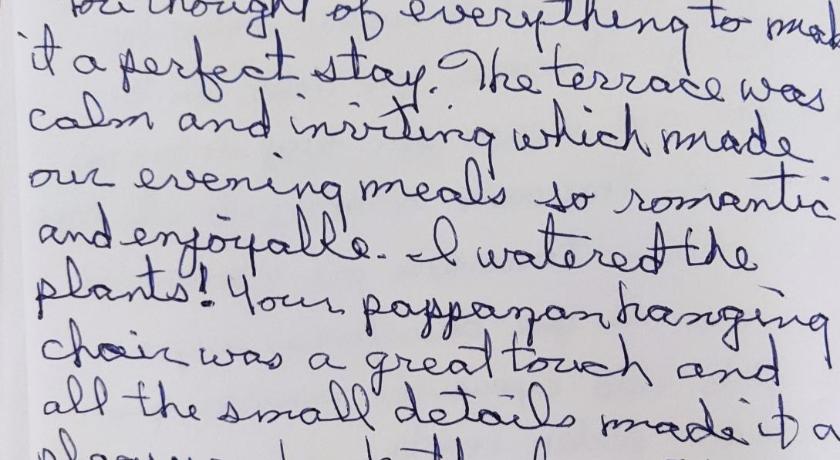 You thought of everything to mak
it a perfect stay. The terrace was
calm and inviting which made
our evening meals so romantic
and enjoyable. I watered the
plants! Your pappazan hanging
chair was a great touch and
all the small details made it a